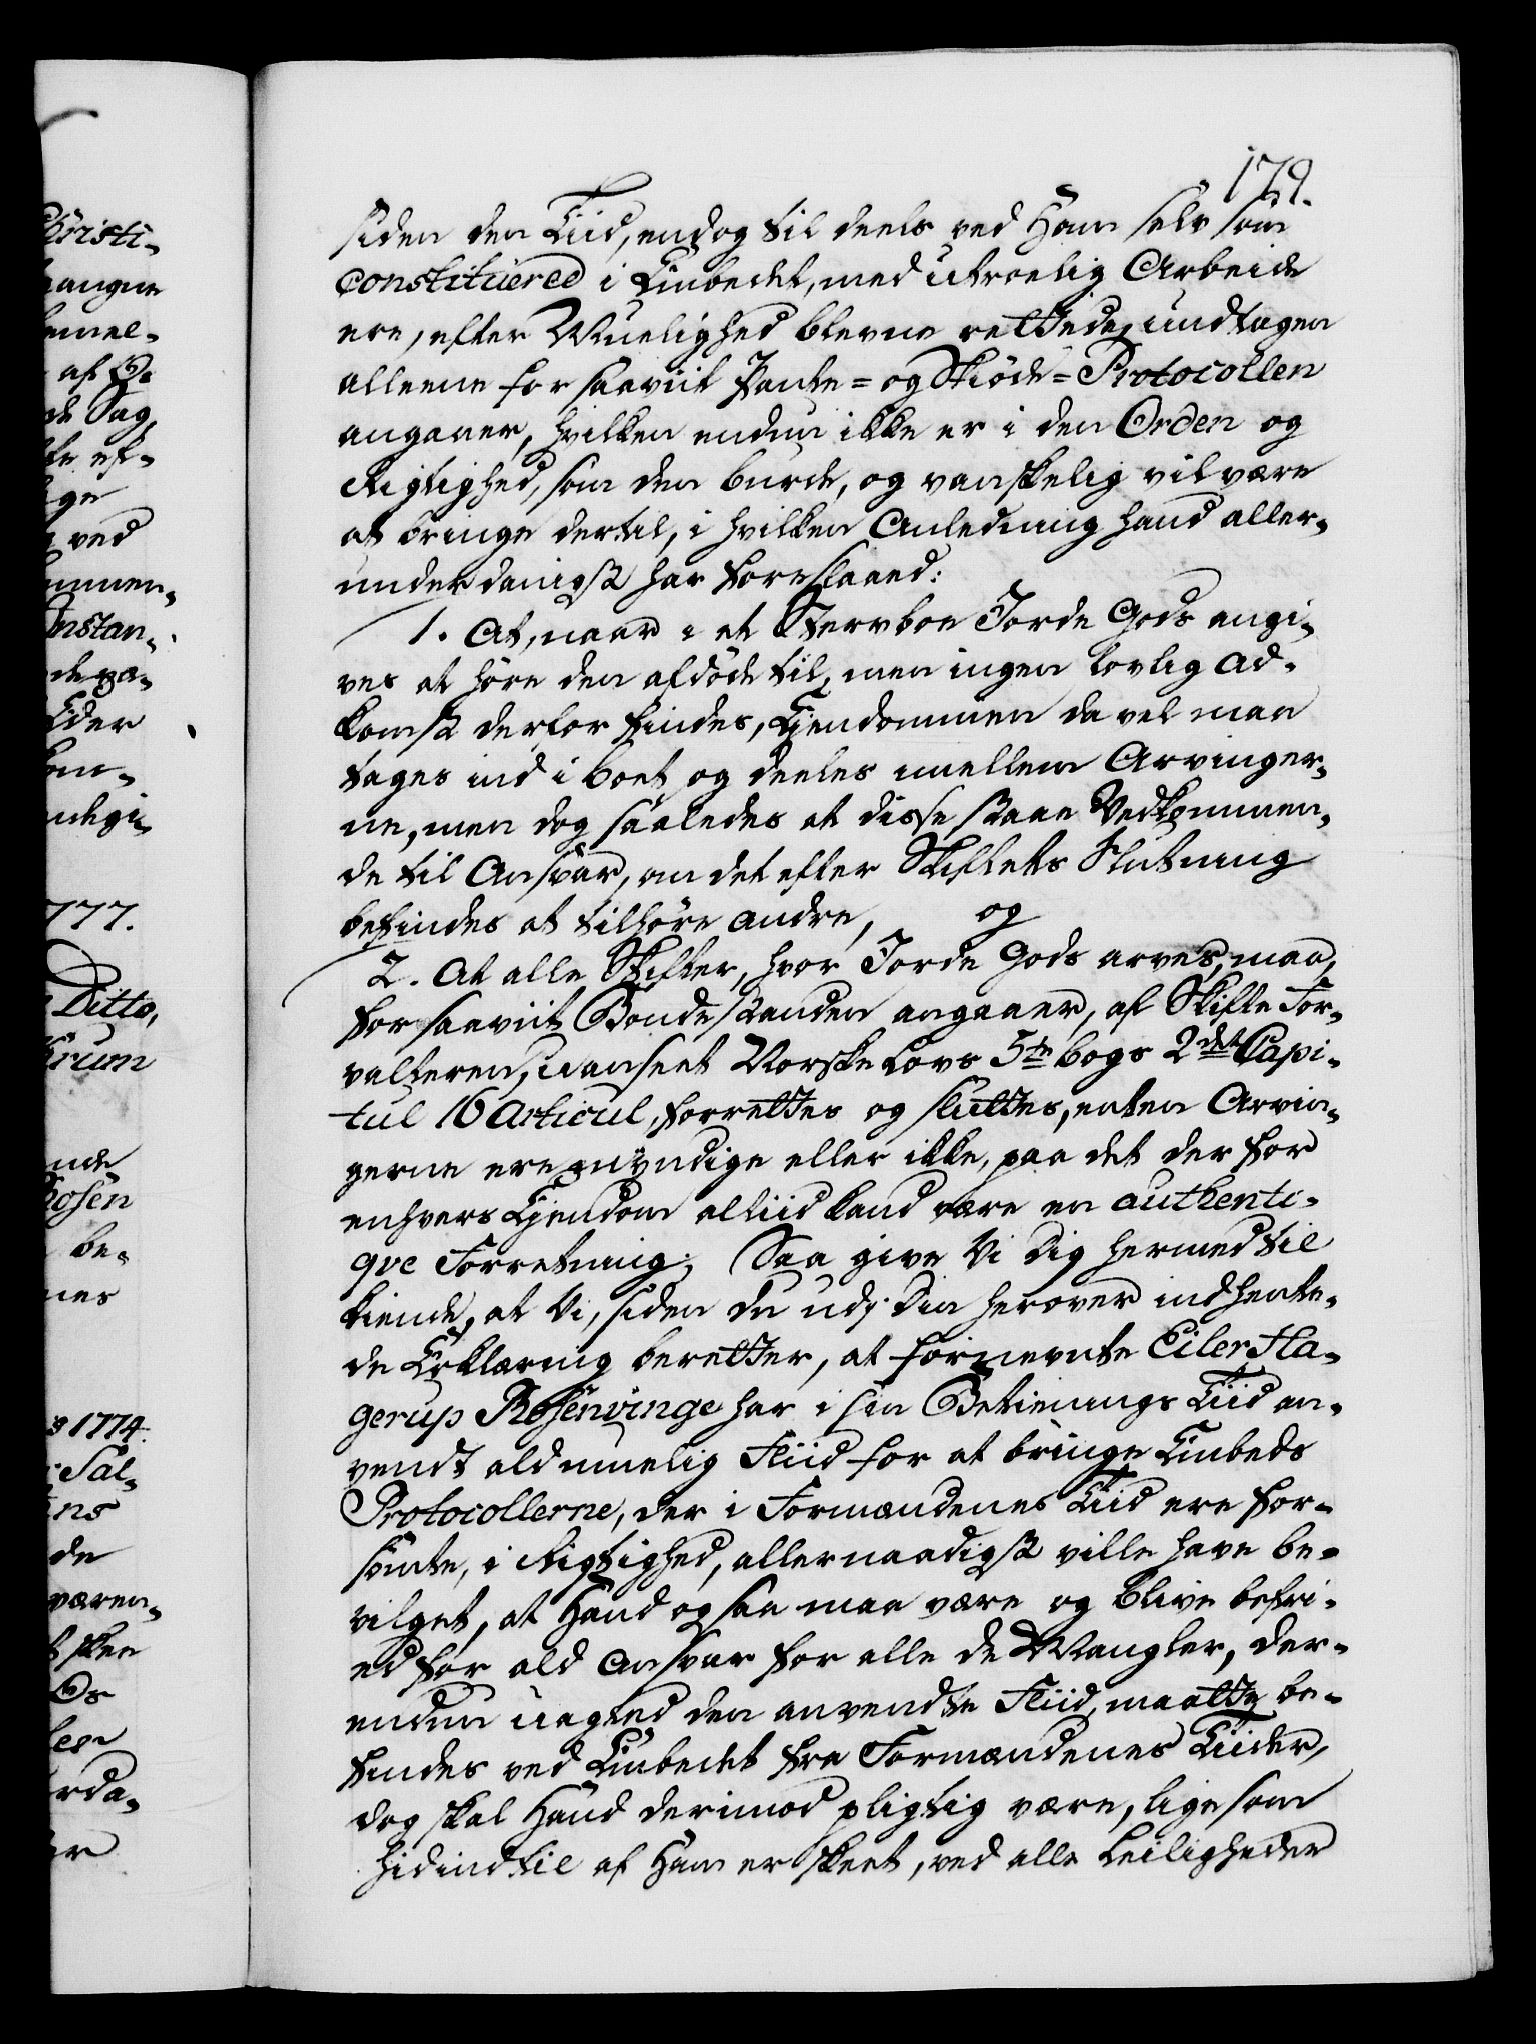 179.
siden den Tiid, endog til deels ved Ham selv som
constituered i Embedet, med utroelig Arbeide
ere, efter Muelighed blevne rettede, undtagen
alleene for saaviit Pante= og Skiöde=Protocollen
angaaer, hvilken endnu ikke er i den Orden og
Rigtighed, som den burde, og vanskelig vil være
at bringe dertil, i hvilken Anledning hand aller-
underdanigst har foreslaaed:
1. At, naar i et Stervboe Jorde Gods angi-
ves at höre den afdöde til, men ingen lovlig Ad-
komst derfor findes, Ejendommen da vel maa
tages ind i boet og deeles imellem Arvinger-
ne, men dog saaledes at disse staae Vedkommen-
de til Ansvar, om det efter Skiftets Slutning
befindes at tilhöre andre, og
2. At alle Skifter, hvor Jorde Gods arves, maa,
for saaviit Bondestanden angaaer, af Skifte For-
valteren, uanseet Norske Lovs 5te bogs 2det Capi-
tul 16 Articul, forrettes og sluttes, enten Arvin-
gerne ere myndige eller ikke, paa det der for
enhvers Ejendom altiid kand være en authenti-
qve Forretning; Saa give Vi Dig hermed til
kiende, at Vi, siden du udj Din herover indhente-
de Erklæring beretter, at fornevnte Eiler Ha-
gerup Rosenvinge har i sin Betienings Tiid an-
vendt ald muelig Fliid for at bringe Embeds
Protocollerne, der i Formændenes Tiid ere for-
sömte, i Rigtighed, allernaadigst ville have be-
vilget, at Hand og saa maa være og blive befri-
ed for ald Ansvar for alle de Mangler, der-
endnu uagted den anvendte Fliid, maatte be-
findes ved Embedet fra Formændenes Tiider,
dog skal Hand derimod pligtig være, lige som
hidindtil af Ham er skeet, ved alle Leiligheder